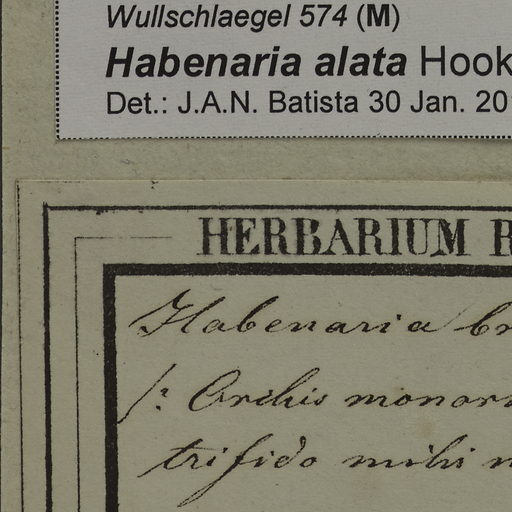 Wullschlaegel 574 (M)
Habenaria alata Hook
Det.: J.A.N. Batista 30 Jan. 20
HERBARIUM R
Habenaria br
Orchis monor
trifido mihi